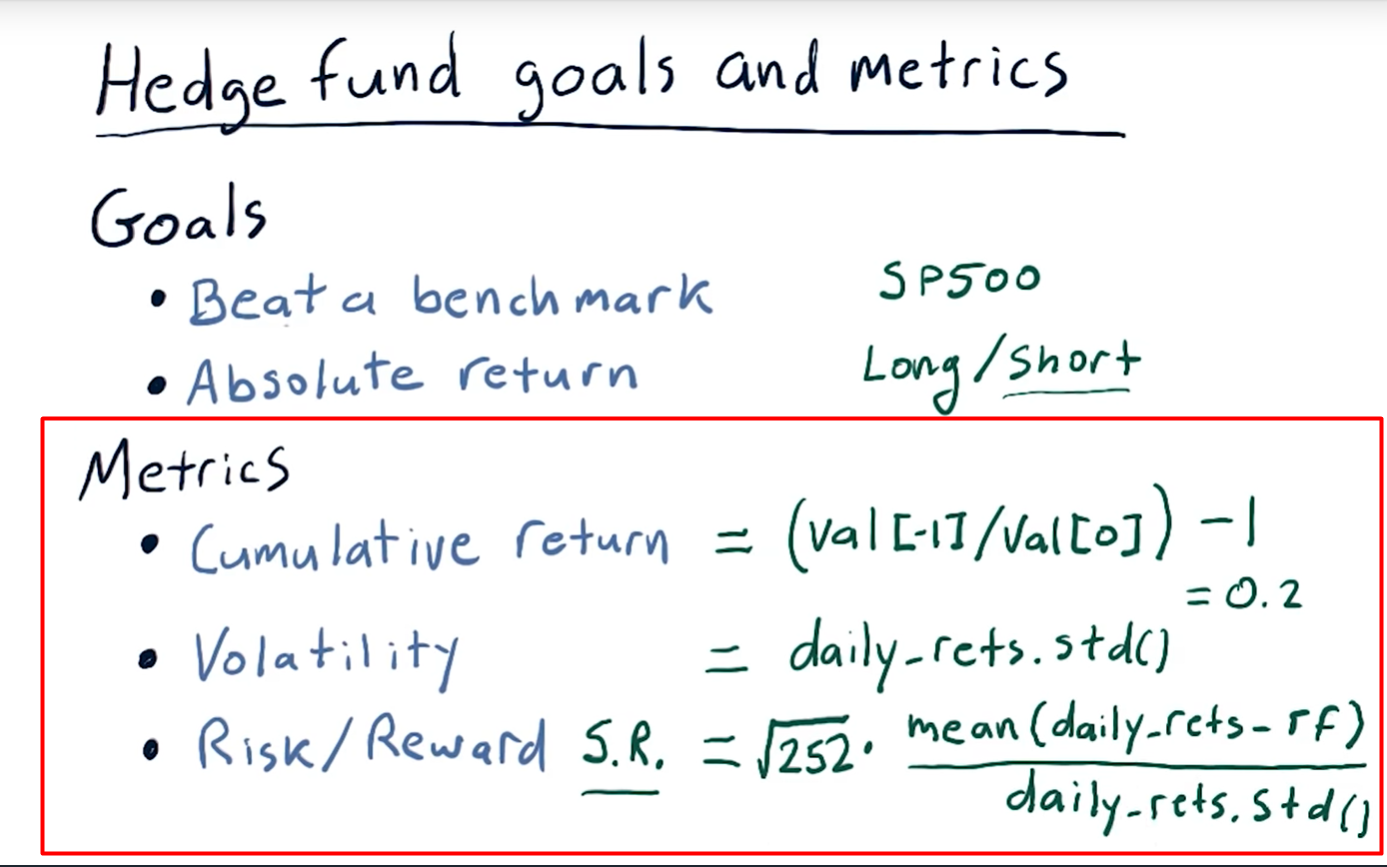 Hedge fund goals and metrics
Goals
• Beat a benchmark SP500
• Absolute return Long/Short
Metrics
• Cumulative return = (val[-1]/Val[0]) - 1
= 0.2
• Volatility = daily_rets.std()
• Risk/Reward S.R. = √252 · mean(daily_rets - rf)
daily_rets.std()